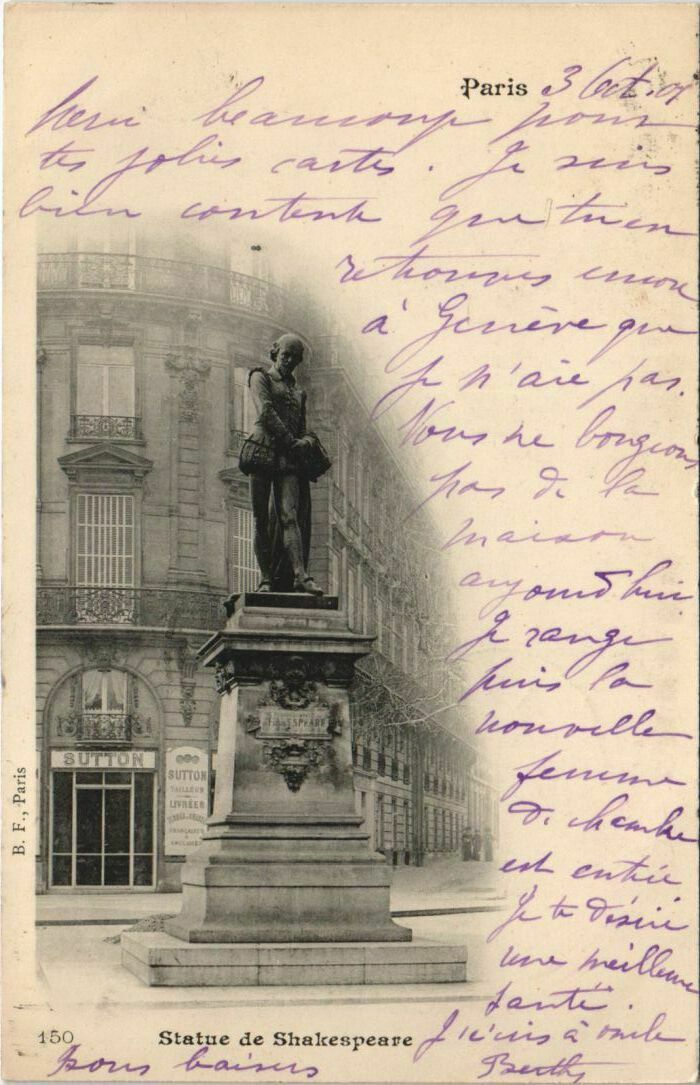 Paris 3 Oct. 01
Merci beaucoup pour
tes jolies cartes. Je suis
bien contente que tu en
retrouves encore
à Genève que
je n'aie pas.
Nous ne bougeons
pas de la
maison
aujourd'hui.
Je range
puis la
nouvelle
femme
de chambre
est entrée
Je te désire
une meilleure
santé.
J'écris à oncle
bons baisers Berthe
SUTTON
SUTTON
TAILLEUR
LIVRÉES
FRANÇAISES
&
ANGLAISES
SHAKESPEARE
B. F., Paris
150 Statue de Shakespeare